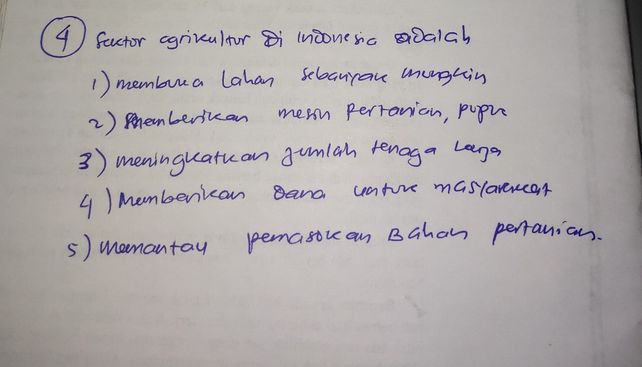 ④ Sektor agrikultur Di Indonesia adalah
1) membuka Lahan sebanyak mungkin
2) Memberikan mesin pertanian, pupuk
3) meningkatkan jumlah tenaga kerja
4) Memberikan Dana untuk masyarakat
5) memantau pemasokan Bahan pertanian.